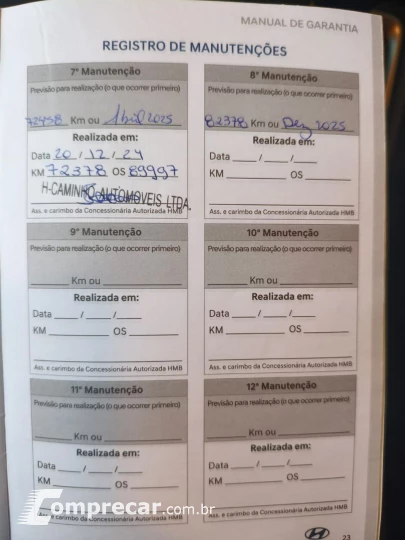 MANUAL DE GARANTIA
REGISTRO DE MANUTENÇÕES
7ª Manutenção
Previsão para realização (o que ocorrer primeiro)
72458 Km ou Abril 2025
Realizada em:
Data 20 / 12 / 24
KM 72378 OS 89997
H-CAMINHO AUTOMOVEIS LTDA.
Ass. e carimbo da Concessionária Autorizada HMB
8ª Manutenção
Previsão para realização (o que ocorrer primeiro)
82378 Km ou Dez 2025
Realizada em:
Data ____ / ____ / ____
KM ________ OS ________
Ass. e carimbo da Concessionária Autorizada HMB
9ª Manutenção
Previsão para realização (o que ocorrer primeiro)
______ Km ou ________
Realizada em:
Data ____ / ____ / ____
KM ________ OS ________
Ass. e carimbo da Concessionária Autorizada HMB
10ª Manutenção
Previsão para realização (o que ocorrer primeiro)
______ Km ou ________
Realizada em:
Data ____ / ____ / ____
KM ________ OS ________
Ass. e carimbo da Concessionária Autorizada HMB
11ª Manutenção
Previsão para realização (o que ocorrer primeiro)
______ Km ou ________
Realizada em:
Data ____ / ____ / ____
KM ________ OS ________
Ass. e carimbo da Concessionária Autorizada HMB
12ª Manutenção
Previsão para realização (o que ocorrer primeiro)
______ Km ou ________
Realizada em:
Data ____ / ____ / ____
KM ________ OS ________
Ass. e carimbo da Concessionária Autorizada HMB
Comprecar.com.br
23